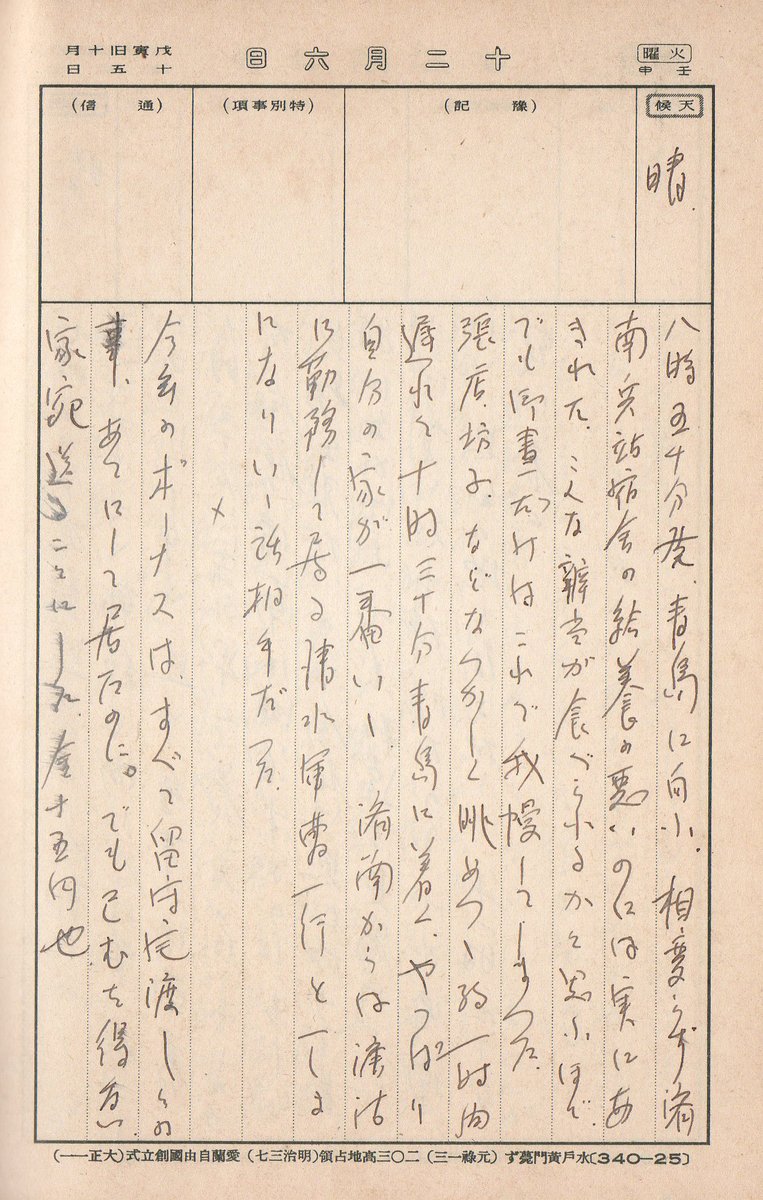 十二月六日
火曜
壬申
戊寅旧十月
十五日
天候
（豫記）
（特別事項）
（通信）
晴.
八時五十分発、青島に向ふ。相変らず済
南兵站宿舎の給養の悪いのには実にあ
きれた。こんな辨当が食べられるかと思ふほど。
でも御昼だけはこれで我慢してしまつた。
張店、坊子、などなつかしく眺めつゝ約一時間
遅れて十時三十分青島に着く。やつぱり
自分の家が一番いゝ。済南からは
に勤務して居る清水軍曹一行と一しよ
になりいゝ話相手だつた。
×
今年のボーナスは、すべて留守宅渡しとの
事、あてにして居たのに。でも已むを得ない。
家宛送ることにした。金十五円也
〔340—25〕水戶黃門薨ず（元祿一三）二〇三高地占領（明治三七）愛蘭自由國創立式（大正一一）